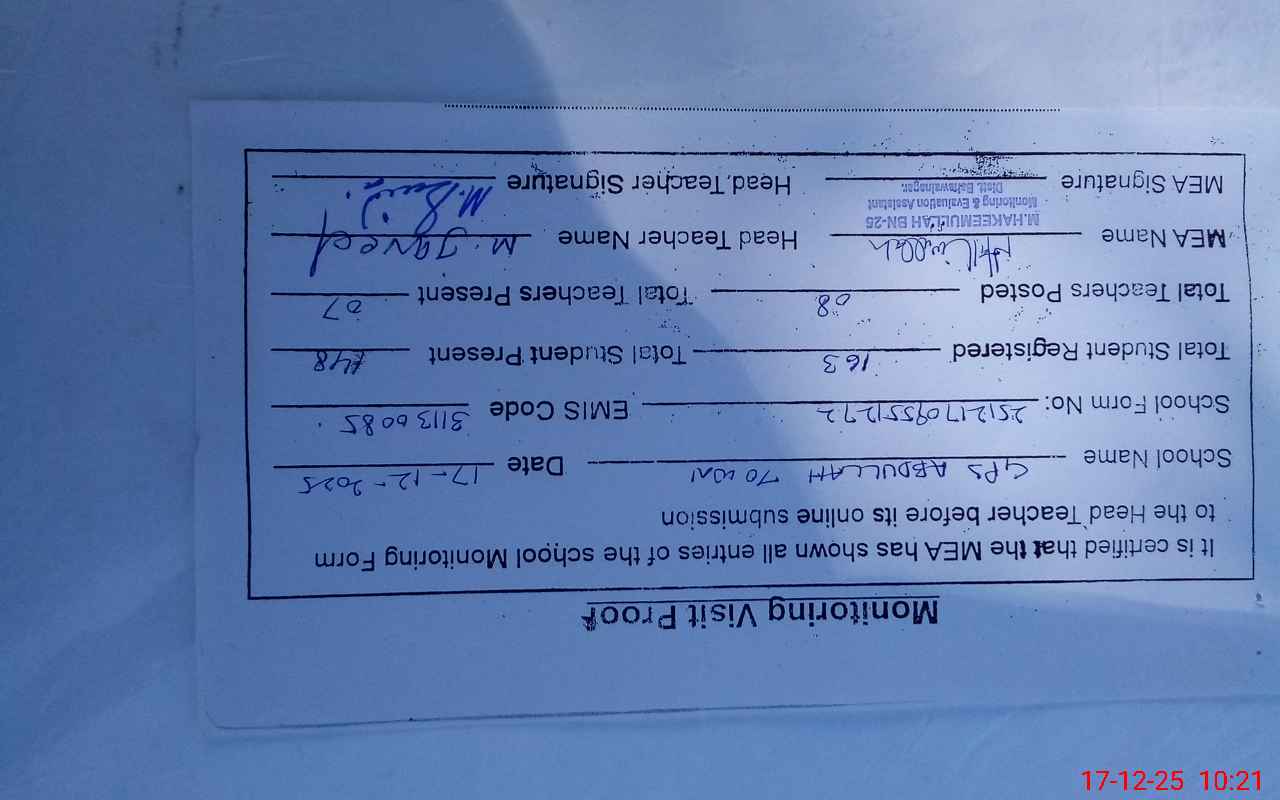 Monitoring Visit Proof
It is certified that the MEA has shown all entries of the school Monitoring Form
to the Head Teacher before its online submission
School Name GPS ABDULLAH TOWN Date 17-12-2025
School Form No: 25121709551272 EMIS Code 31130085
Total Student Registered 163 Total Student Present 148
Total Teachers Posted 08 Total Teachers Present 07
MEA Name Head Teacher Name M. Javed
M.HAKEEMULLAH BN-25
Monitoring & Evaluation Assistant
Distt. Bahawalnagar.
MEA Signature Head Teacher Signature
17-12-25 10:21